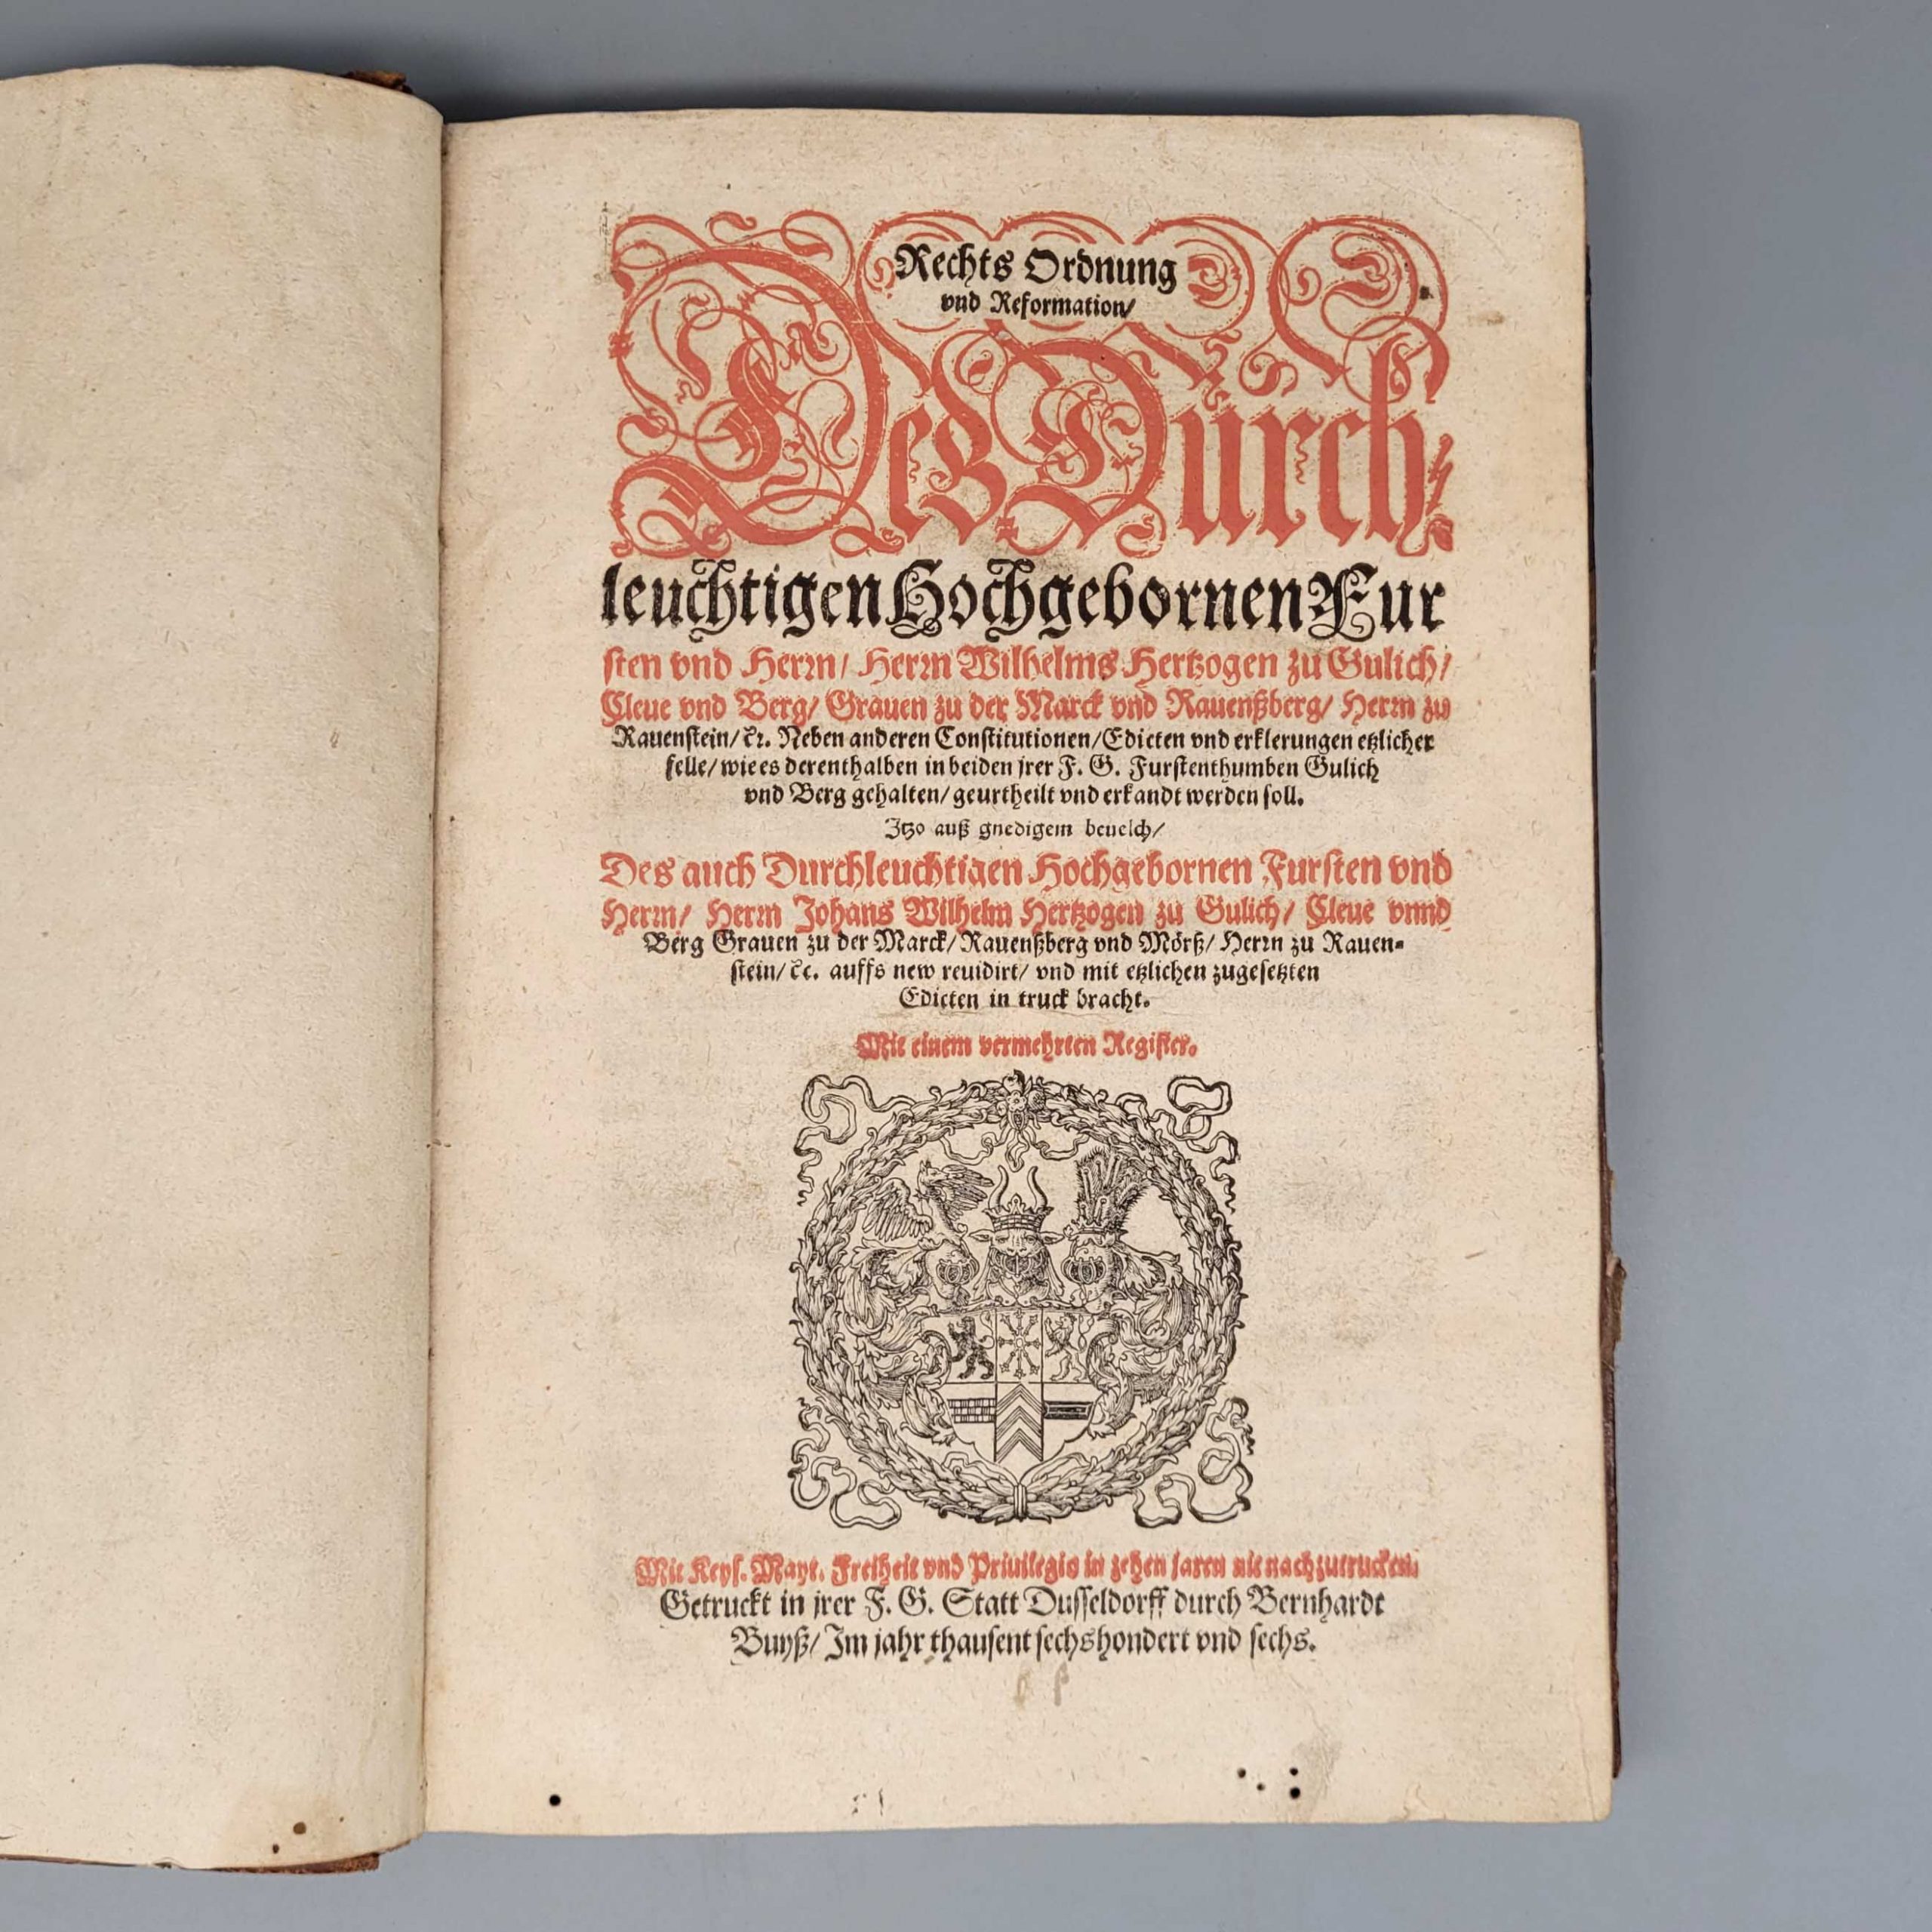 Rechts Ordnung
vnd Reformation/
Deß Durch-
leuchtigen Hochgebornen Fur
sten vnd Herrn/ Herrn Wilhelms Hertzogen zu Gulich/
Cleue vnd Berg/ Grauen zu der Marck vnd Rauenßberg/ Herrn zu
Rauenstein/ ꝛc. Neben anderen Constitutionen/ Edicten vnd erklerungen etzlicher
felle/ wie es derenthalben in beiden jrer F. G. Furstenthumben Gulich
vnd Berg gehalten/ geurtheilt vnd erkandt werden soll.
Itzo auß gnedigem beuelch/
Des auch Durchleuchtigen Hochgebornen Fursten vnd
Herrn/ Herrn Johans Wilhelm Hertzogen zu Gulich/ Cleue vnnd
Berg Grauen zu der Marck/ Rauenßberg vnd Mörß/ Herrn zu Rauen-
stein/ ꝛc. auffs new reuidirt/ vnd mit etzlichen zugesetzten
Edicten in truck bracht.
Mit einem vermehrten Register.
Mit Keys. Mayt. Freiheit vnd Priuilegio in zehen jaren nit nachzutrucken.
Getruckt in jrer F. G. Statt Dusseldorff durch Bernhardt
Buyß/ Im jahr thausent sechshondert vnd sechs.